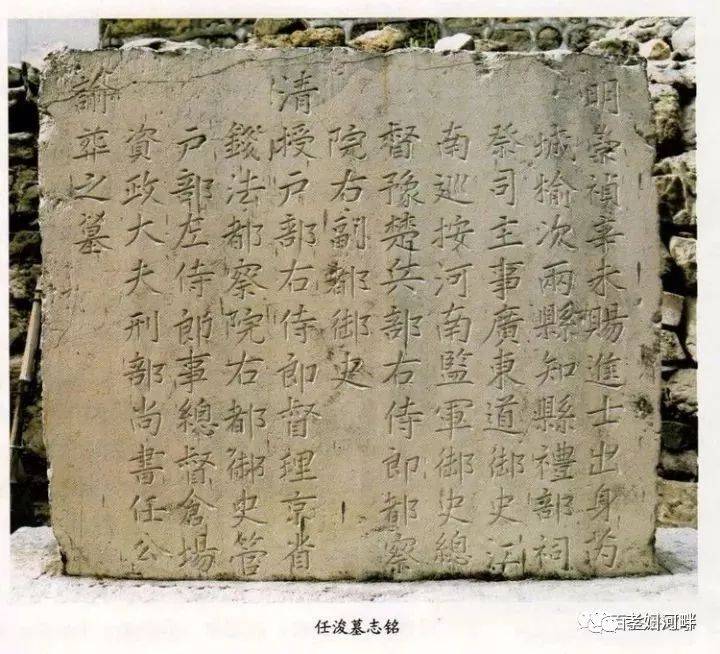 明崇禎辛未賜進士出身芮
城榆次兩縣知縣禮部祠
祭司主事廣東道御史江
南巡按河南監軍御史總
督豫楚兵部右侍郎都察
院右副都御史
清授戶部右侍郎督理京省
錢法都察院右都御史管
戶部左侍郎事總督倉場
資政大夫刑部尚書任公
諭葬之墓
任浚墓志铭
孝妇河畔